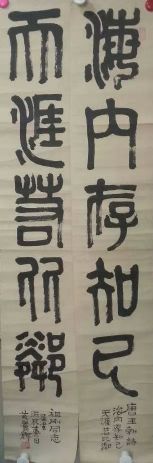 海内存知己
唐王勃詩
海内存知己
天涯若比鄰
天涯若比鄰
同志